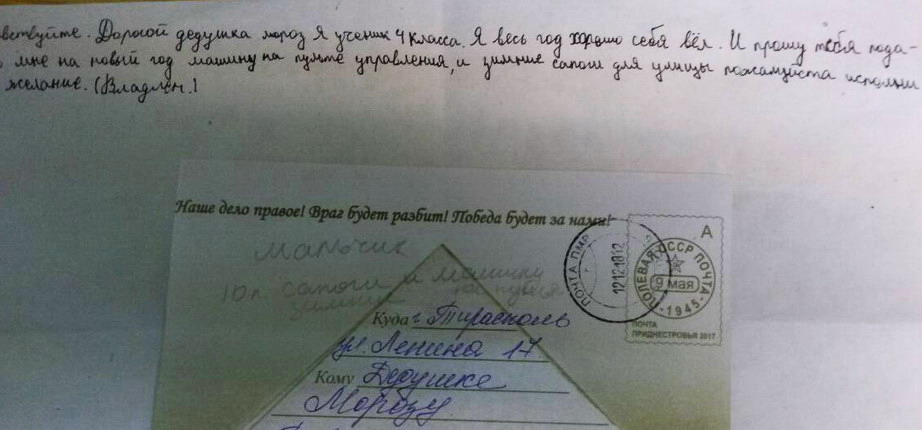 вствуйте. Дорогой дедушка мороз я ученик 4 класса. Я весь год хорошо себя вёл. И прошу тебя пода-
мне на новый год машину на пульте управления, и зимние сапоги для улицы пожалуйста исполни
желание. (Владлен.)
Наше дело правое! Враг будет разбит! Победа будет за нами!
мальчик
10л. сапоги и машинку
зимние
Куда г. Тирасполь
ул. Ленина 17
Кому Дедушке
Морозу
ПОЧТА ПМР
12121812
А
ПОЛЕВАЯ СССР ПОЧТА
9 мая
1945
ПОЧТА
ПРИДНЕСТРОВЬЯ 2017